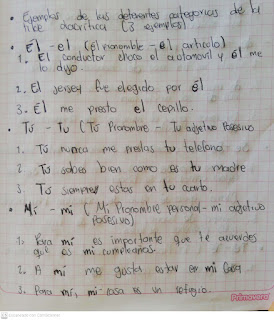 • Ejemplos de las diferentes categorias de la
tilde diacritica (3 ejemplos)
• Él - el (él pronombre - el articulo)
1. El conductor choco el automovil y él me
lo dijo.
2. El jersey fue elegido por él
3. Él me presto el cepillo.
• Tú - Tu (Tú Pronombre - Tu adjetivo Posesivo
1. Tú nunca me prestas tu telefono
2. Tú sabes bien como es tu madre
3. Tú siempre estas en tu cuarto.
• Mí - mi (Mí Pronombre personal - mi adjetivo
posesivo)
1. Para mí es importante que te acuerdes
que es mi cumpleaños.
2. A mí me gusta estar en mi casa
3. Para mí, mi casa es un refugio.
Primavera